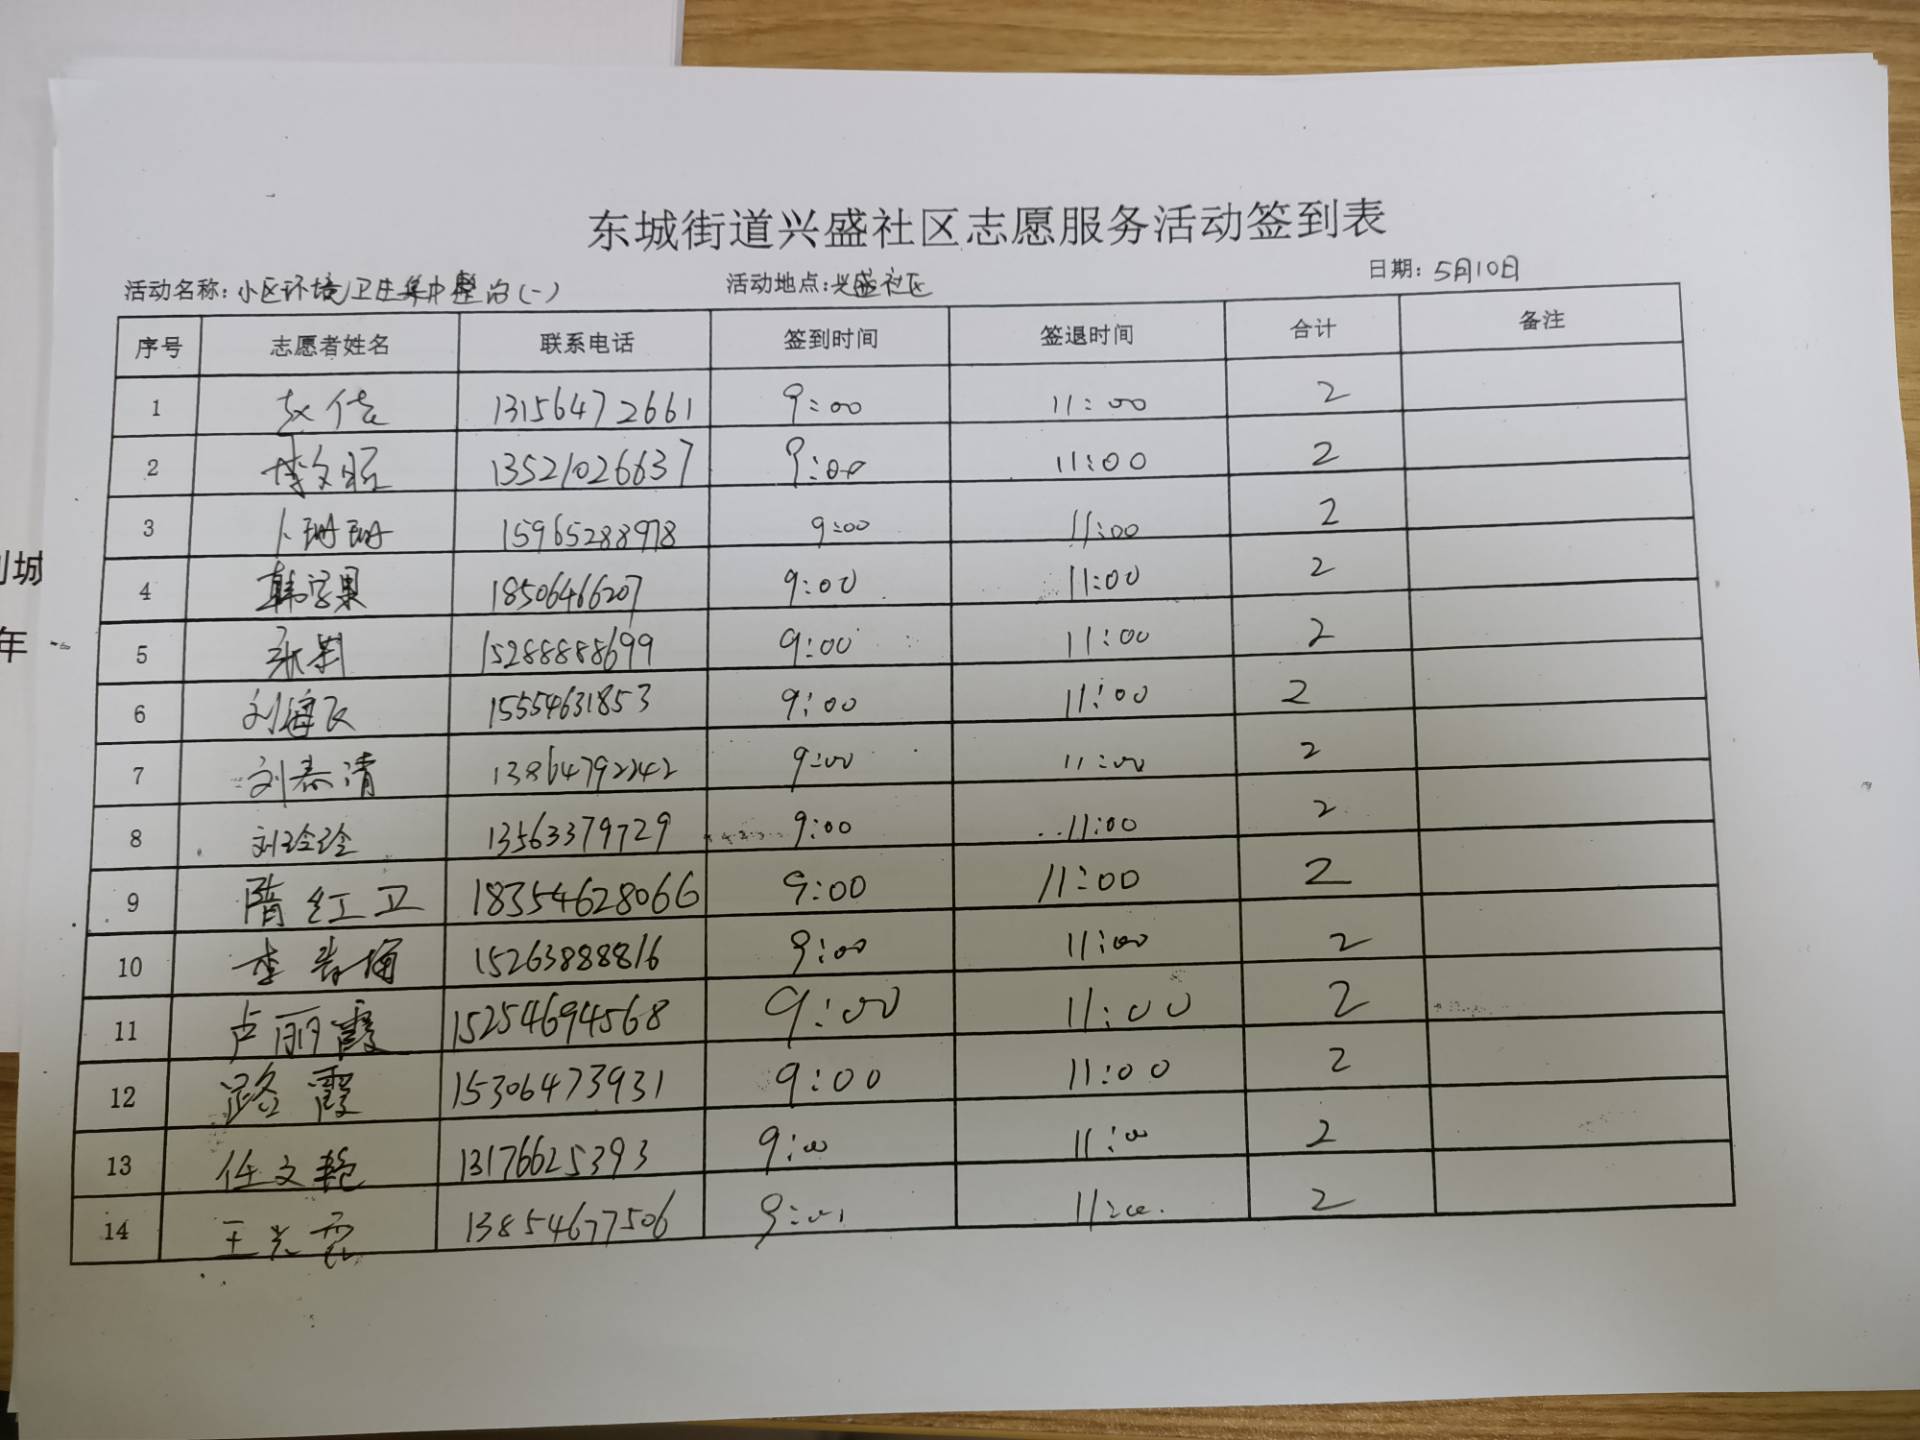 东城街道兴盛社区志愿服务活动签到表
活动名称：小区环境卫生集中整治(一) 活动地点：兴盛社区 日期：5月10日
序号 志愿者姓名 联系电话 签到时间 签退时间 合计 备注
1 赵倩 13156472661 9:00 11:00 2
2 13521026637 9:00 11:00 2
3 卜珊珊 15965288978 9:00 11:00 2
4 韩学果 18506466207 9:00 11:00 2
5 15288888699 9:00 11:00 2
6 刘海飞 15554631853 9:00 11:00 2
7 刘春清 13864792242 9:00 11:00 2
8 刘玲玲 13563379729 9:00 11:00 2
9 隋红卫 18354628066 9:00 11:00 2
10 李 15263888816 9:00 11:00 2
11 卢丽霞 15254694568 9:00 11:00 2
12 路霞 15306473931 9:00 11:00 2
13 任文艳 13176625393 9:00 11:00 2
14 王 13854677506 9:00 11:00 2
城
年